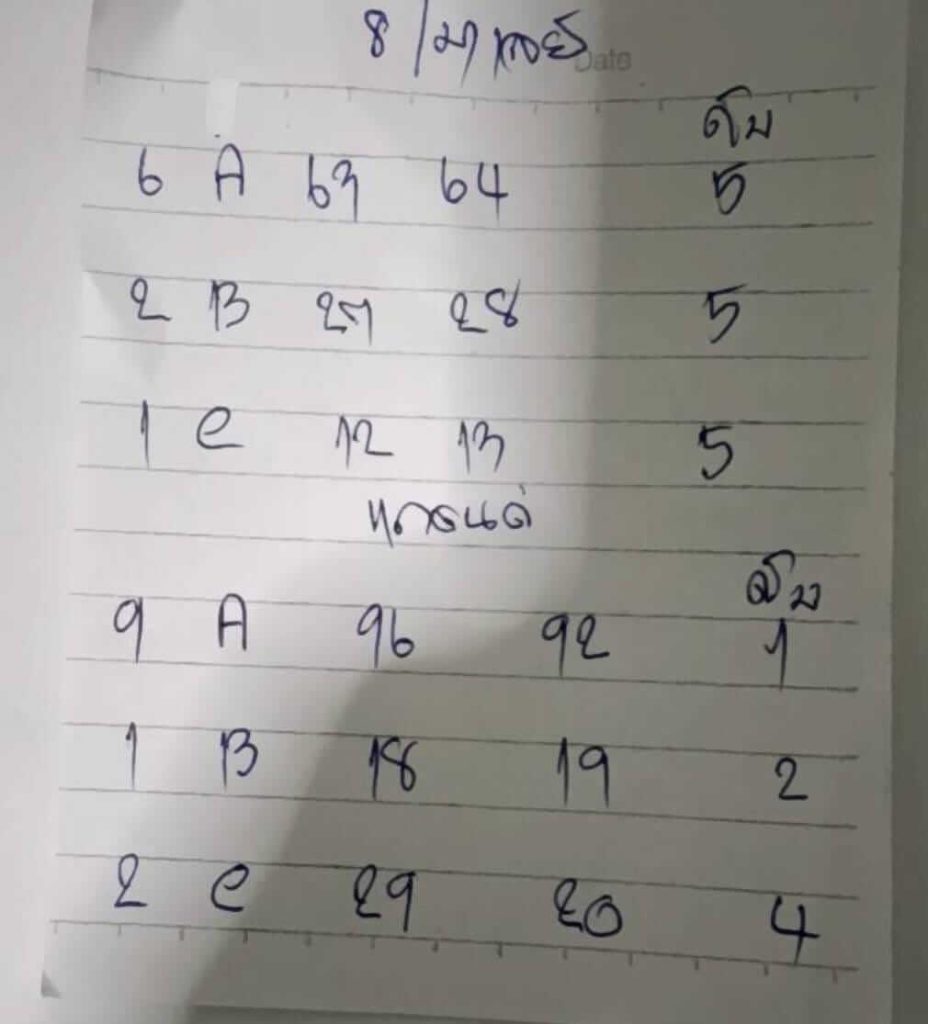 8/มาเลย์
Date
ดับ
6 A 63 64 5
2 B 27 28 5
1 C 12 13 5
แกรนด์
ดับ
9 A 96 92 1
1 B 18 19 2
2 C 29 20 4